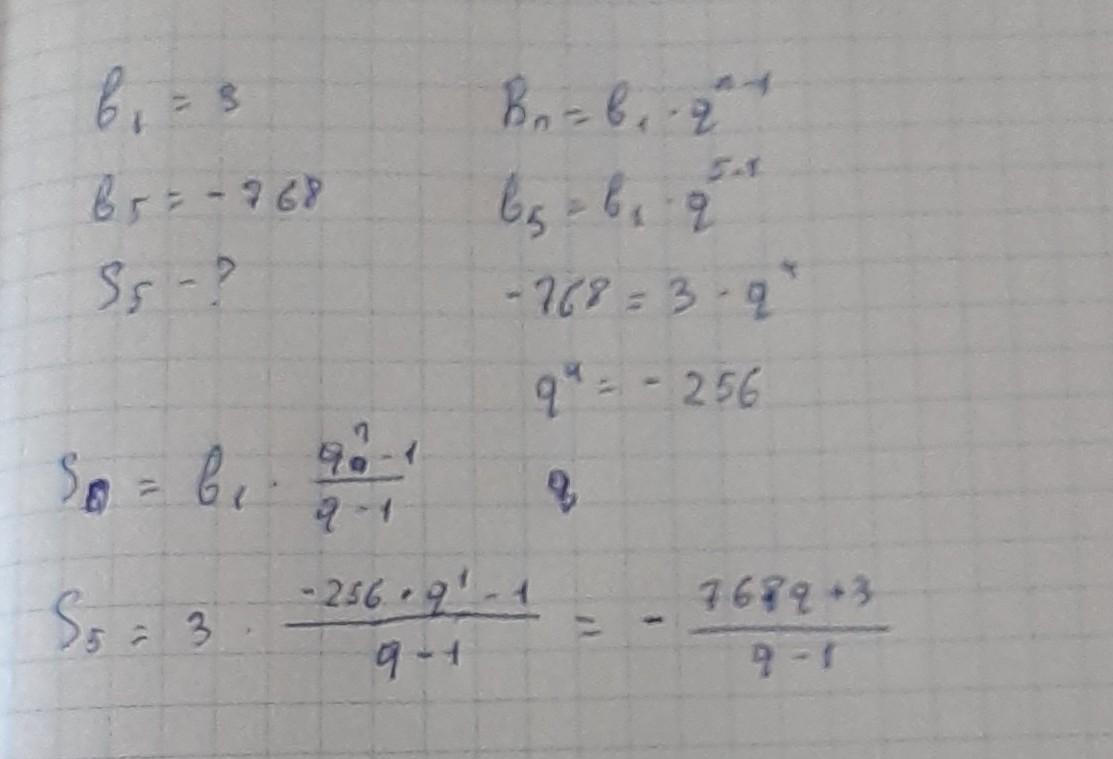 в₁ = 3
в₅ = -768
S₅ - ?
Bₙ = в₁ · qⁿ⁻¹
в₅ = в₁ · q⁵⁻¹
-768 = 3 · q⁴
q⁴ = - 256
q
Sₙ = в₁ · (qⁿ - 1)/(q - 1)
S₅ = 3 · (-256 · q¹ - 1)/(q - 1) = - (768q + 3)/(q - 1)